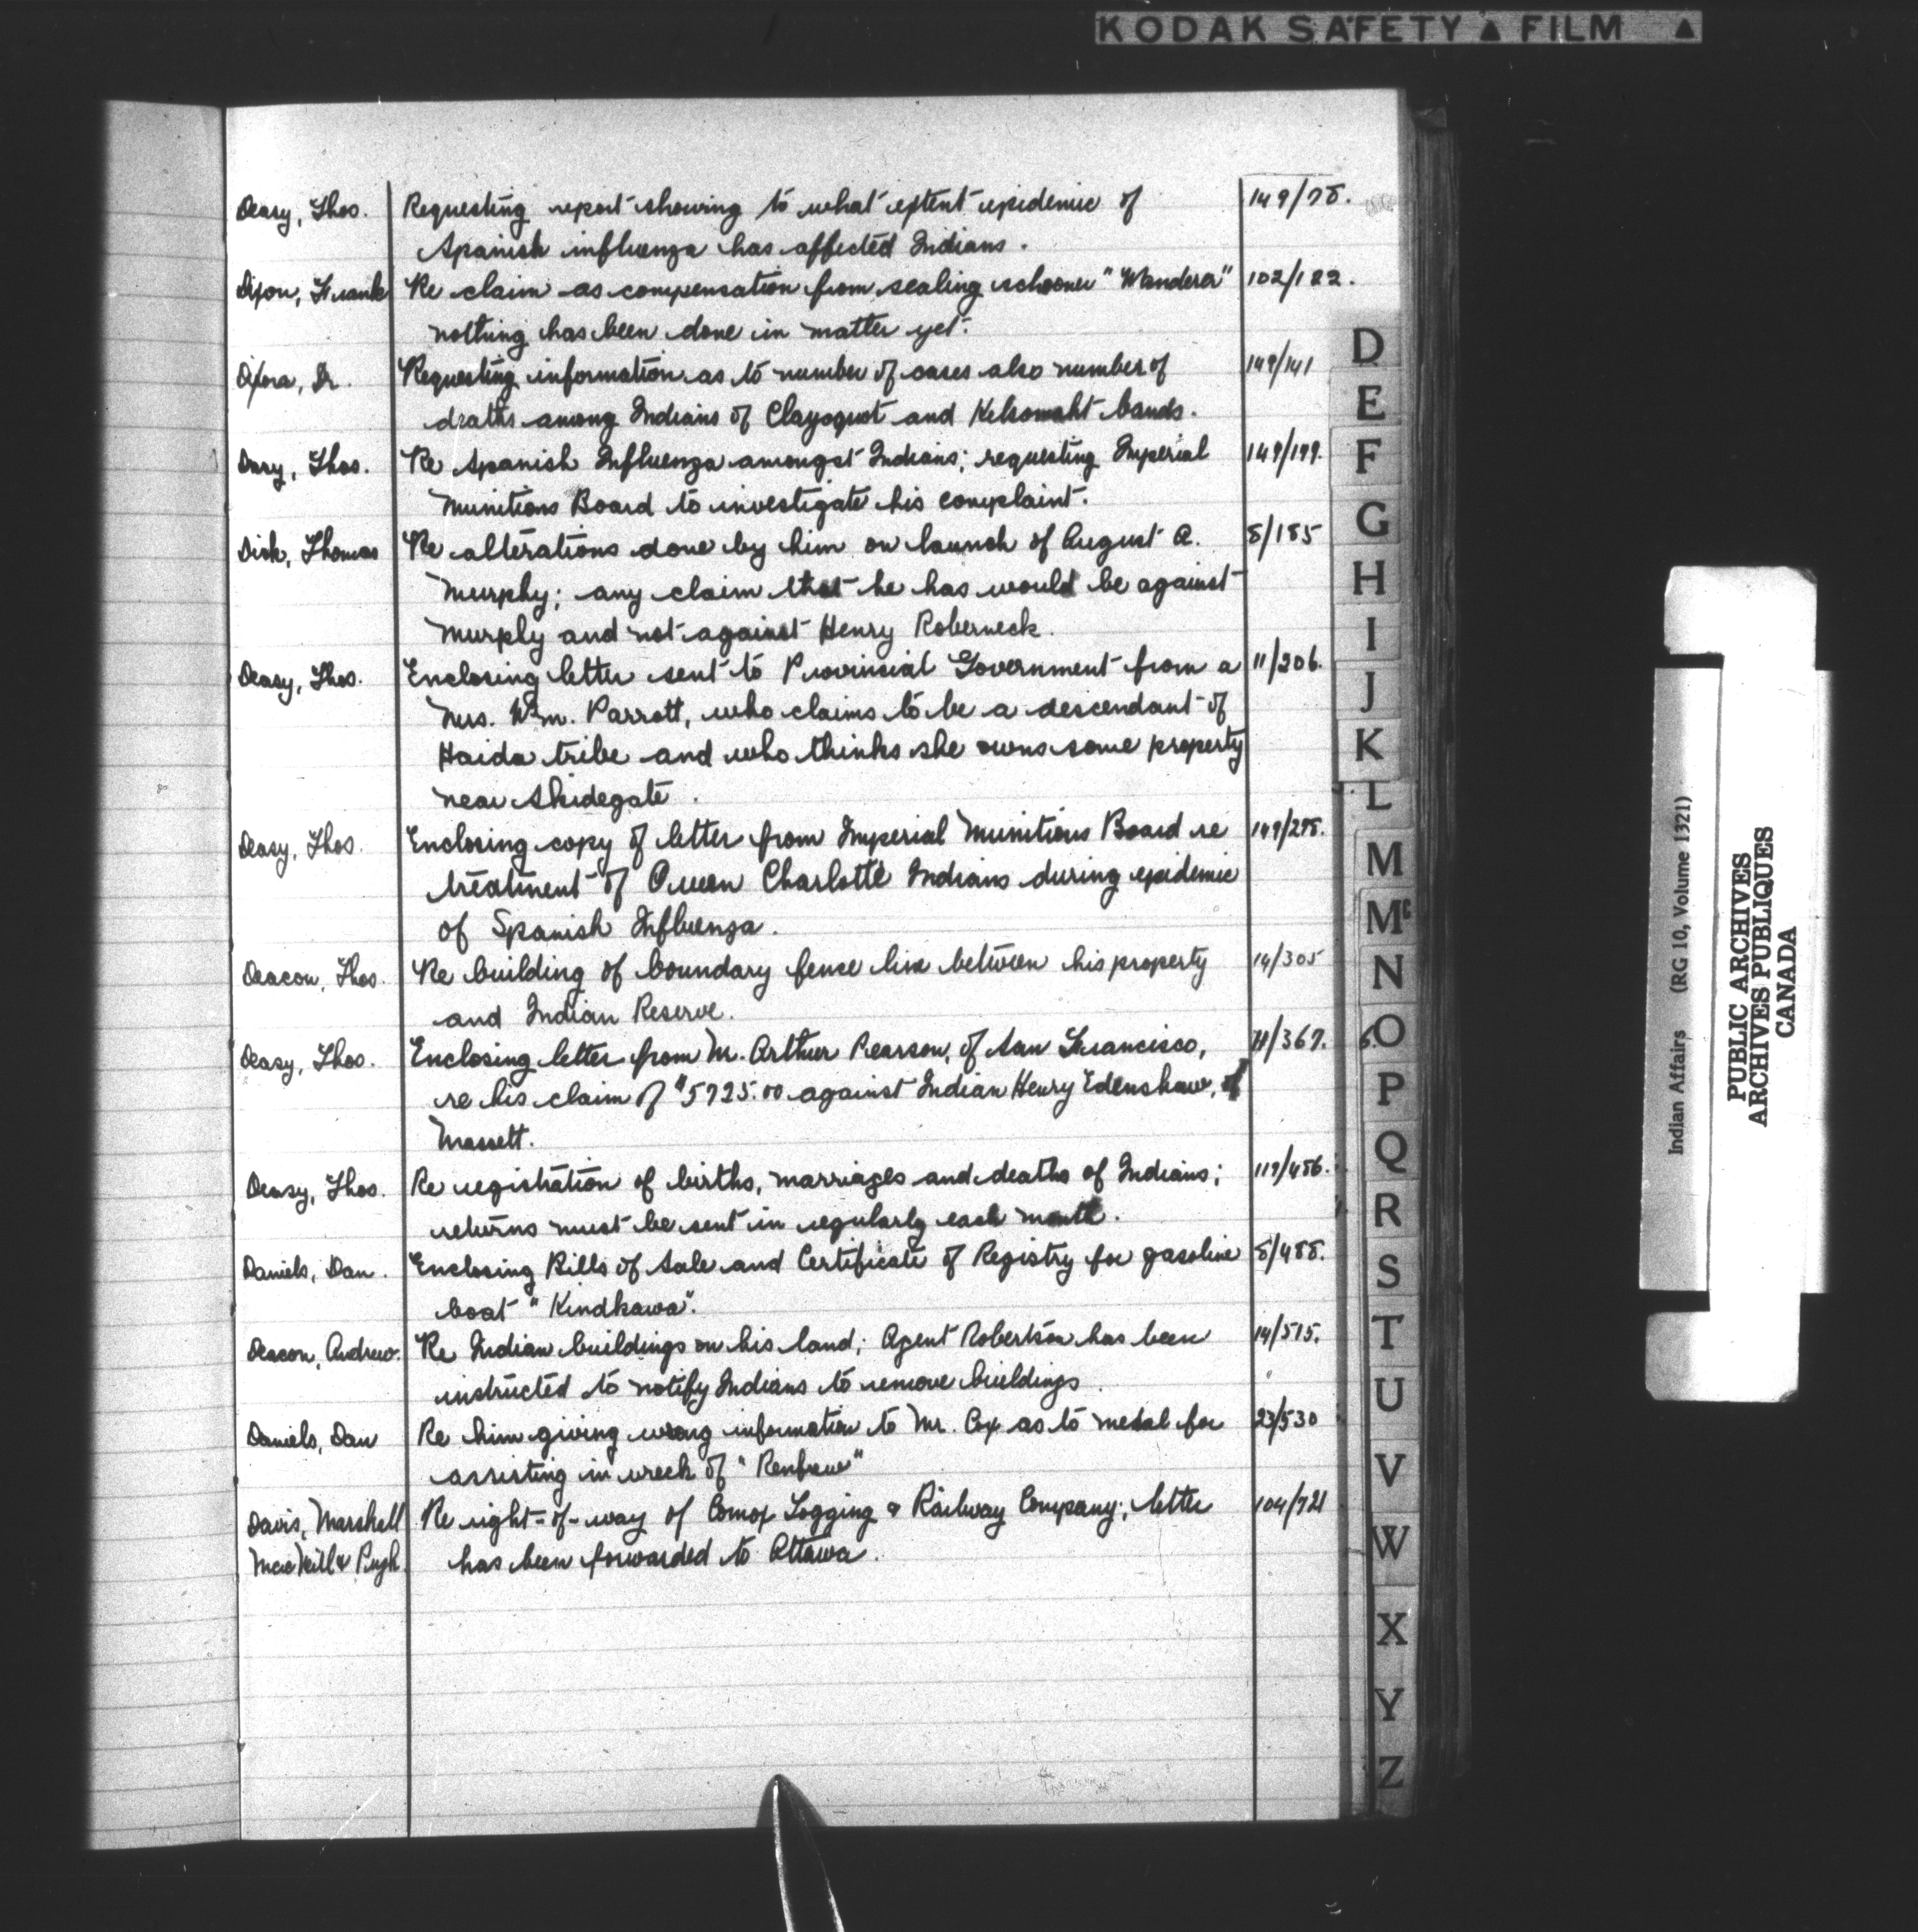 KODAK SAFETY ▲ FILM ▲
Deasy, Thos. Requesting report showing to what extent epidemic of 149/78.
Spanish influenza has affected Indians.
Dixon, Frank Re claim as compensation from sealing schooner "Wanderer" 102/122.
nothing has been done in matter yet.
Dixon, Dr. Requesting information as to number of cases also number of 149/141
deaths among Indians of Clayoquot and Kelsomaht bands.
Deasy, Thos. Re Spanish Influenza amongst Indians; requesting Imperial 149/199.
Munitions Board to investigate his complaint.
Dick, Thomas Re alterations done by him on launch of August A. 8/185
Murphy; any claim that he has would be against
Murphy and not against Henry Roberneck.
Deasy, Thos. Enclosing letter sent to Provincial Government from a 11/206.
Mrs. Wm. Parrott, who claims to be a descendant of
Haida tribe and who thinks she owns some property
near Skidegate.
Deasy, Thos. Enclosing copy of letter from Imperial Munitions Board re 149/298.
treatment of Queen Charlotte Indians during epidemic
of Spanish Influenza.
Deacon, Thos. Re building of boundary fence line between his property 14/305
and Indian Reserve.
Deasy, Thos. Enclosing letter from Mr. Arthur Pearson, of San Francisco, 11/367.
re his claim of $5725.00 against Indian Henry Edenshaw, of
Massett.
Deasy, Thos. Re registration of births, marriages and deaths of Indians; 119/486.
returns must be sent in regularly each month.
Daniels, Dan. Enclosing Bills of Sale and Certificate of Registry for gasoline 8/488.
boat "Kindkawa".
Deacon, Andrew. Re Indian buildings on his land; Agent Robertson has been 14/515.
instructed to notify Indians to remove buildings.
Daniels, Dan Re him giving wrong information to Mr. Cox as to medal for 23/530
assisting in wreck of "Renfrew"
Davis, Marshell Re right-of-way of Comox Logging & Railway Company; letter 104/721
MacNeill & Pugh. has been forwarded to Ottawa.
D
E
F
G
H
I
J
K
L
M
Mc
N
O
P
Q
R
S
T
U
V
W
X
Y
Z
Indian Affairs (RG 10, Volume 1321)
PUBLIC ARCHIVES
ARCHIVES PUBLIQUES
CANADA